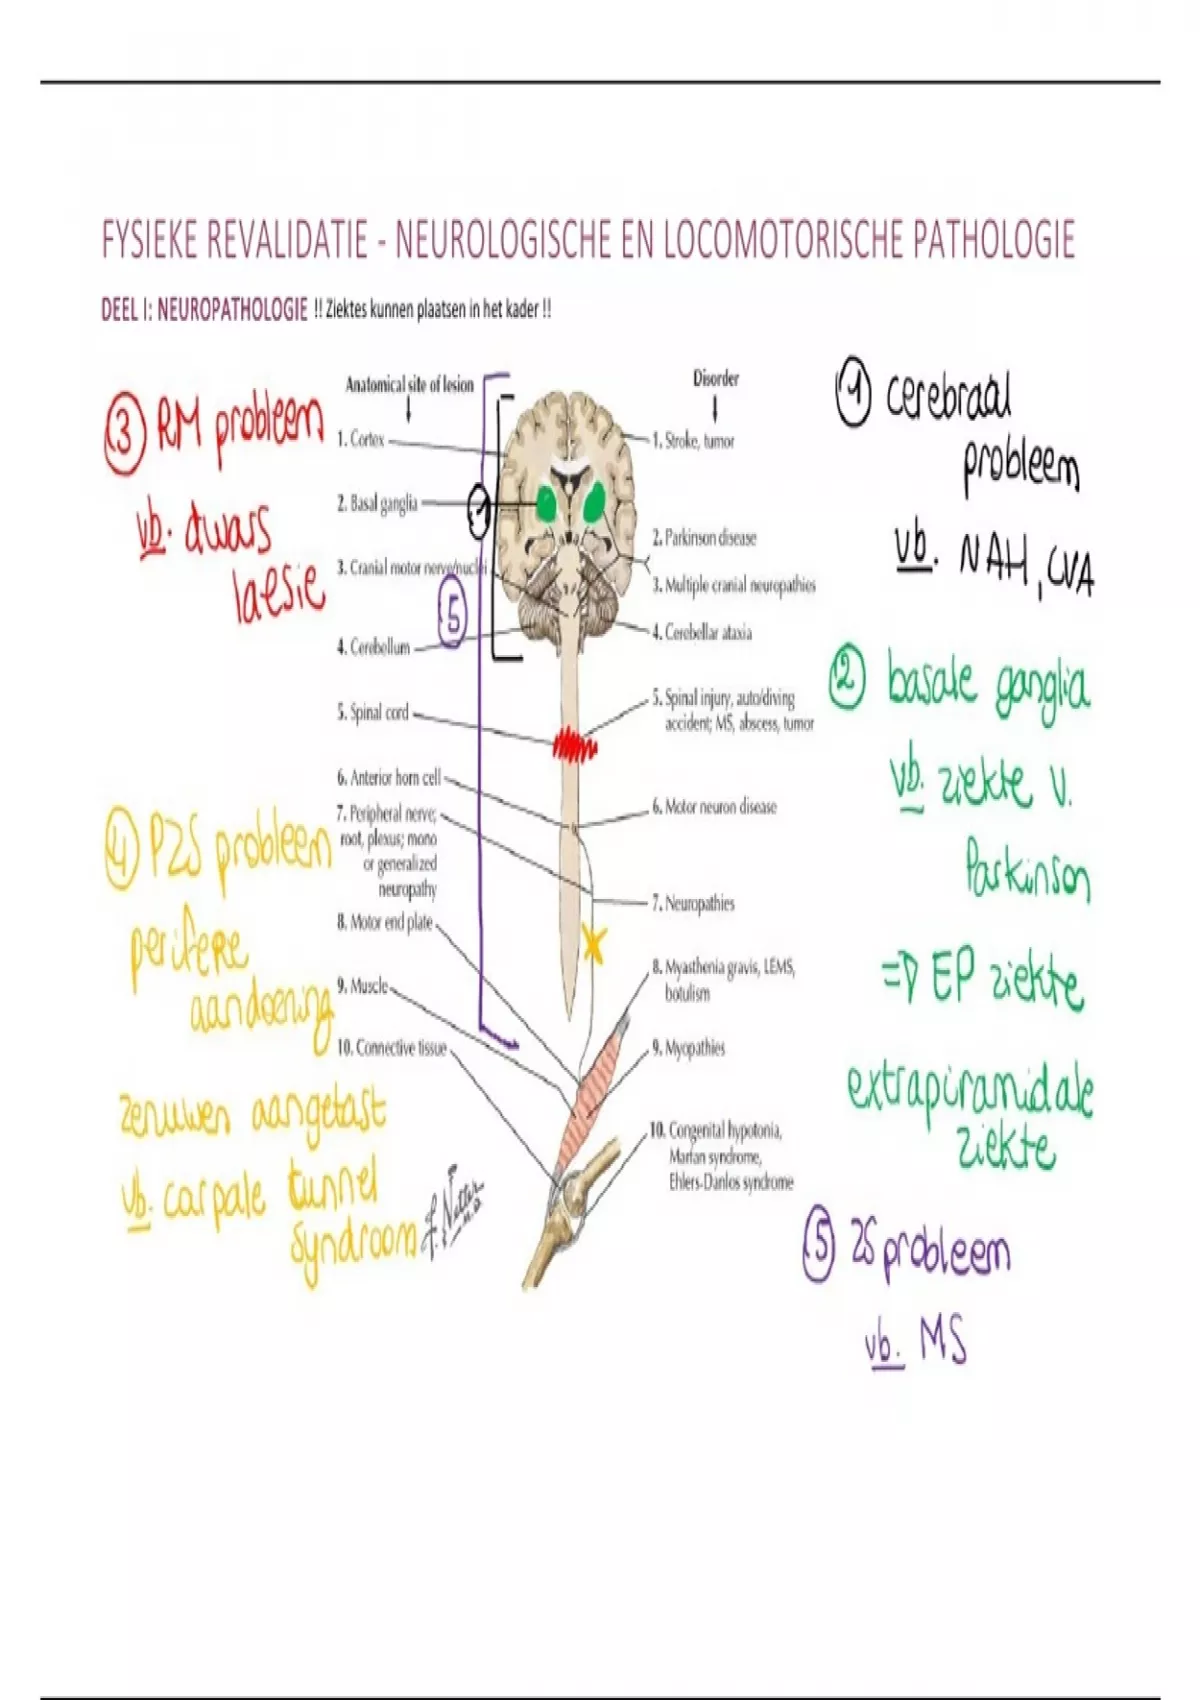 FYSIEKE REVALIDATIE - NEUROLOGISCHE EN LOCOMOTORISCHE PATHOLOGIE
DEEL I: NEUROPATHOLOGIE !! Ziektes kunnen plaatsen in het kader !!
3 RM probleem
vb. dwars
laesie
4 PZS probleem
perifere
aandoening
zenuwen aangetast
vb. carpale tunnel
syndroom
Anatomical site of lesion
1. Cortex
2. Basal ganglia
3. Cranial motor nerve/nuclei
4. Cerebellum
5. Spinal cord
6. Anterior horn cell
7. Peripheral nerve;
root, plexus; mono
or generalized
neuropathy
8. Motor end plate
9. Muscle
10. Connective tissue
1
5
F. Netter
M.D.
Disorder
1. Stroke, tumor
2. Parkinson disease
3. Multiple cranial neuropathies
4. Cerebellar ataxia
5. Spinal injury, auto/diving
accident; MS, abscess, tumor
6. Motor neuron disease
7. Neuropathies
8. Myasthenia gravis, LEMS,
botulism
9. Myopathies
10. Congenital hypotonia,
Marfan syndrome,
Ehlers-Danlos syndrome
1 cerebraal
probleem
vb. NAH, CVA
2 basale ganglia
vb. ziekte v.
Parkinson
=> EP ziekte
extrapiramidale
ziekte
5 ZS probleem
vb. MS